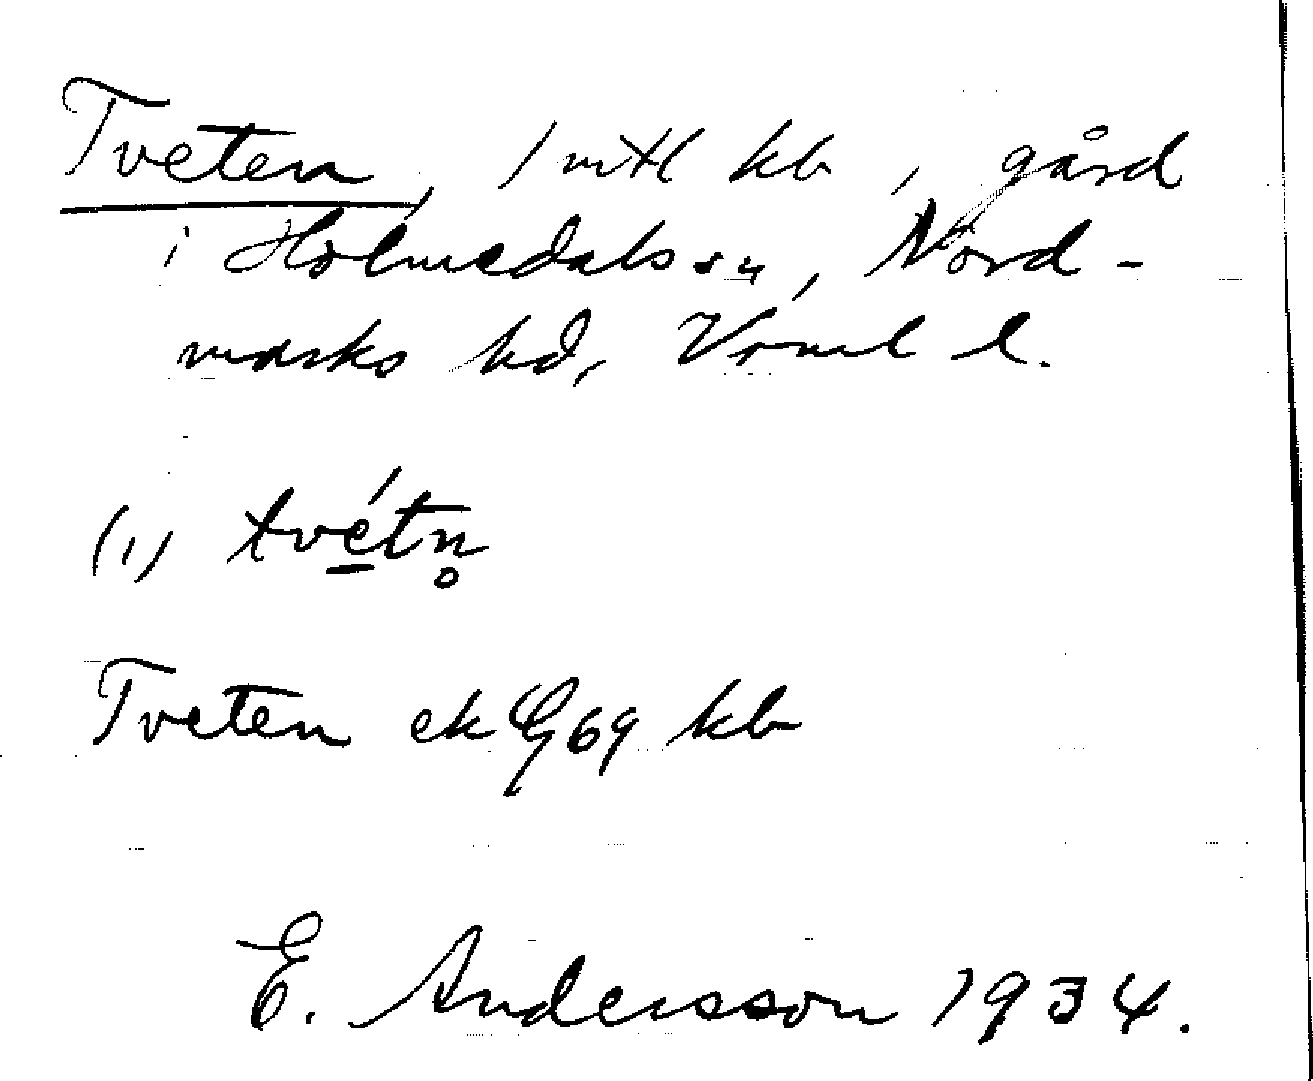 Tveten, 1 mtl kb, gård
i Holmedals sn, Nord-
marks hd, Vrml l.
(1) tvétn̥
Tveten ek G 69 kb
E. Andersson 1934.